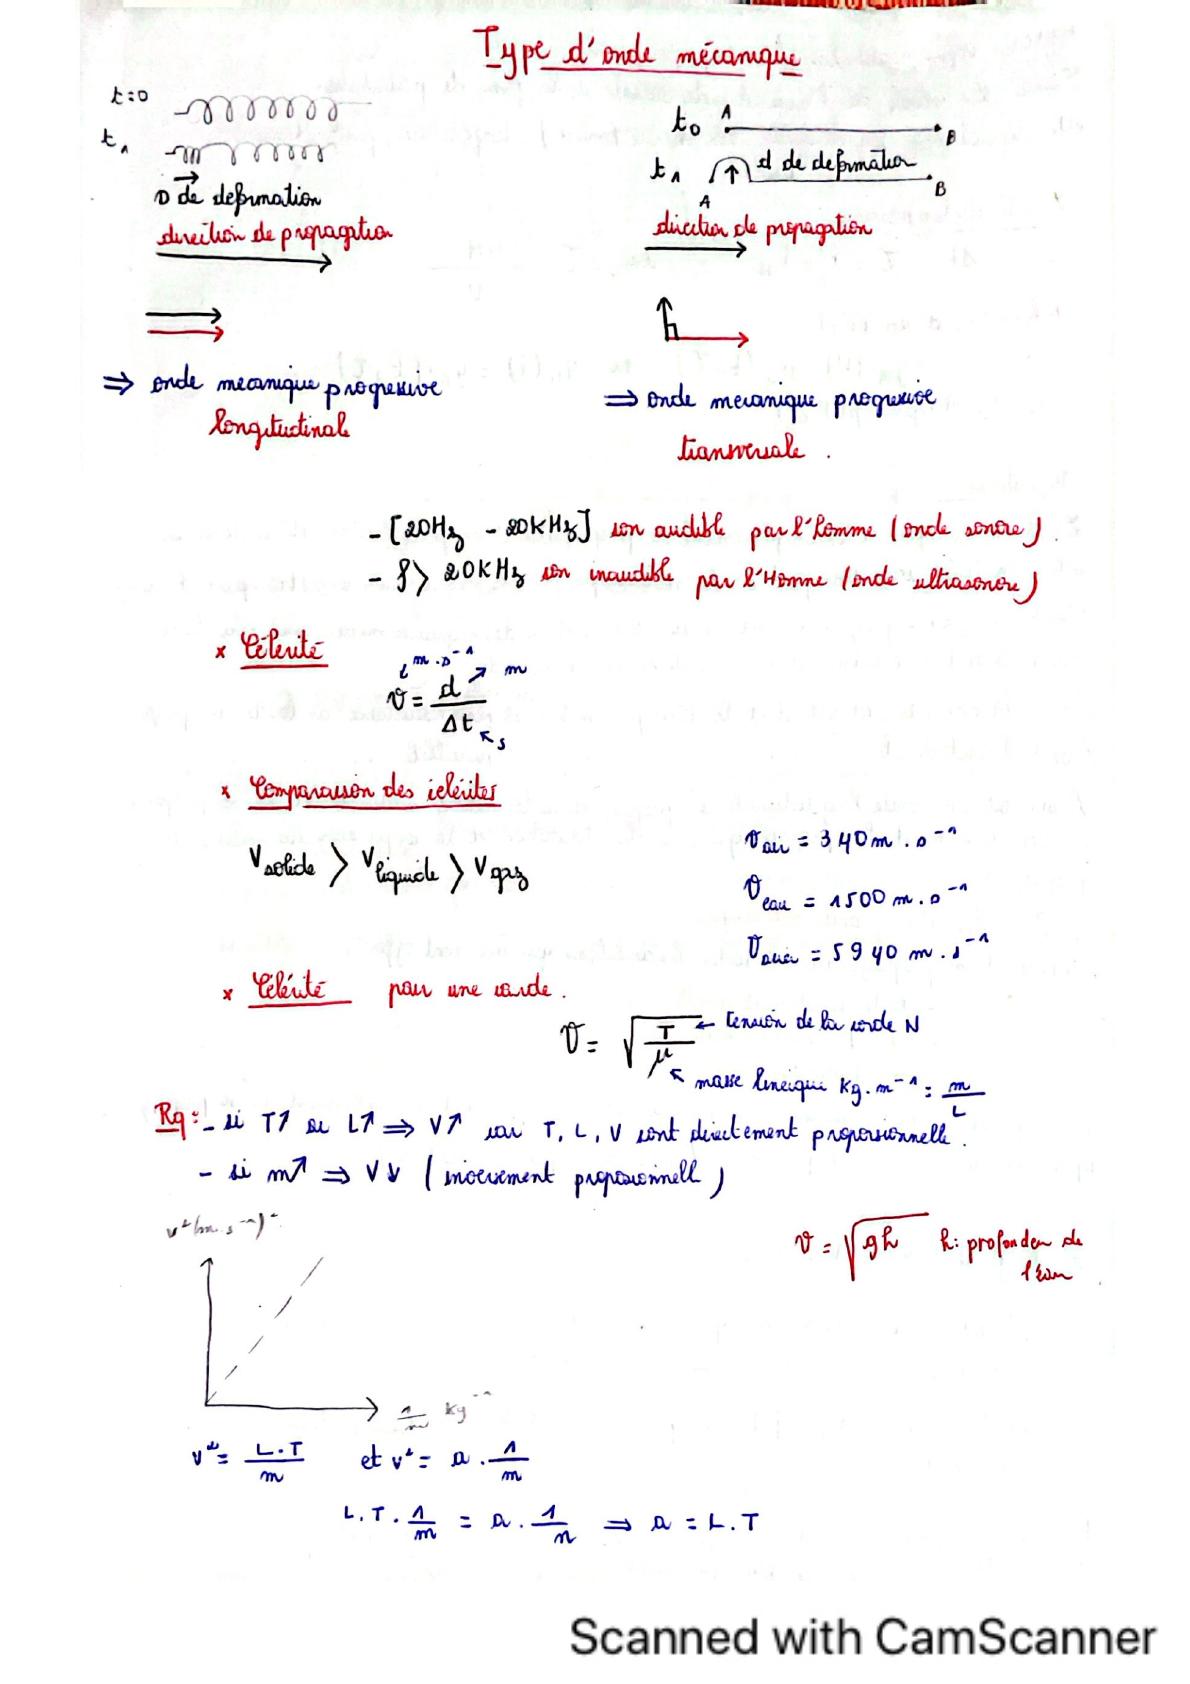 Type d'onde mécanique
t=0
t₁
D de deformation
direction de propagation
t₀ A B
t₁ d de deformation
A B
direction de propagation
⇒ onde mecanique progressive
longitudinal
⇒ onde mecanique progressive
transversale .
- [20Hz - 20KHz] son audible par l'homme (onde sonore) .
- f > 20KHz son inaudible par l'Homme (onde ultrasonore)
x Célérité
m.s⁻¹
v = d / Δt
m
s
x Comparaison des célérites
V solide > V liquide > V gaz
v air = 340 m.s⁻¹
v eau = 1500 m.s⁻¹
v acier = 5940 m.s⁻¹
x Célérité pour une corde .
v = √(T/μ) ← tension de la corde N
masse lineique Kg.m⁻¹ = m/L
Rq : - si T↑ ou L↑ ⇒ V↑ car T, L, V sont directement proporsionnelle .
- si m↑ ⇒ V↓ ( inversement proporsionnell )
v²(m.s⁻¹)²
v = √gh h: profondeur de
l'eau
1/m Kg⁻¹
v² = L.T/m et v² = a . 1/m
L.T . 1/m = a . 1/m ⇒ a = L.T
Scanned with CamScanner